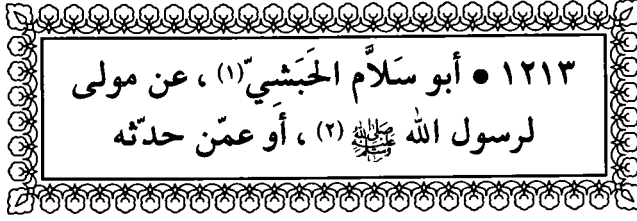 ١٢١٣ ● أبو سَلاَّم الحَبَشيّ(١) ، عن مولى
لرسول الله ﷺ (٢) ، أَو عمّن حدّثه